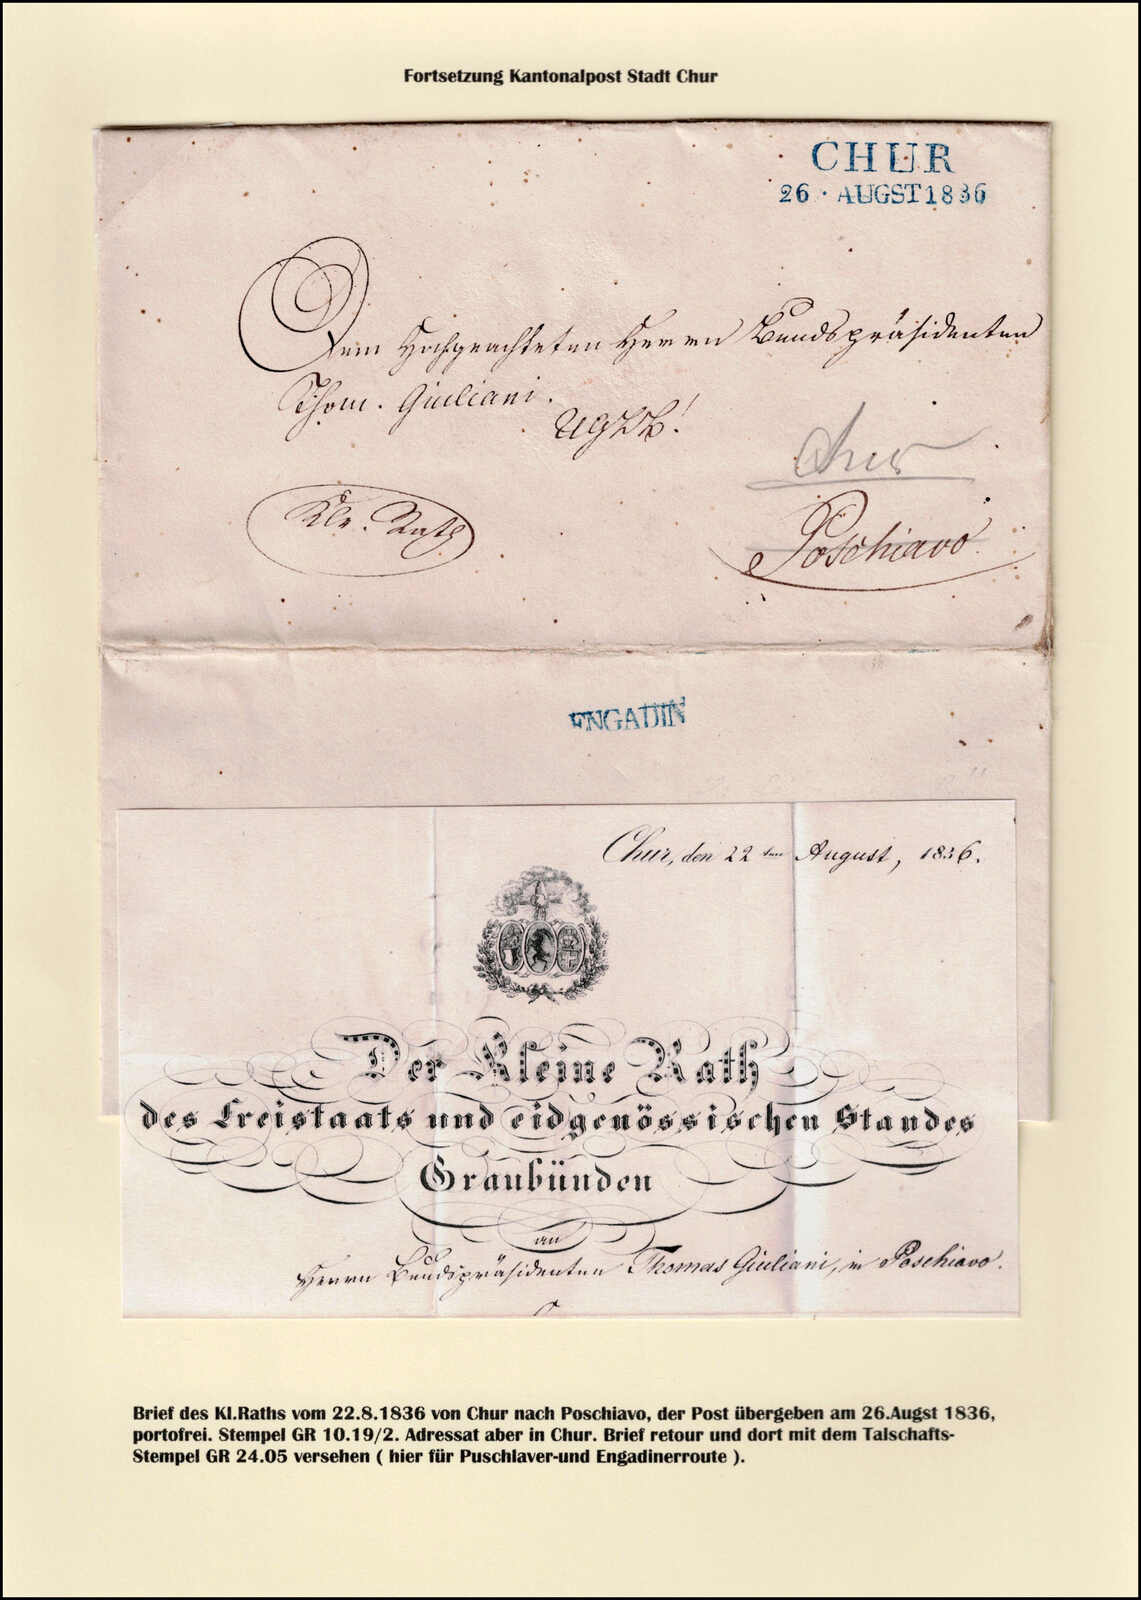 Fortsetzung Kantonalpost Stadt Chur
CHUR
26 · AUGST 1836
Dem Hochgeachteten Herrn Bundspräsidenten
Thom. Giuliani.
Chur
Kln. Rath
Poschiavo
ENGADIN
Chur, den 22 ten August, 1836.
Der Kleine Rath
des Freistaats und eidgenössischen Standes
Graubünden
an
Herrn Bundspräsidenten Thomas Giuliani, in Poschiavo.
Brief des Kl.Raths vom 22.8.1836 von Chur nach Poschiavo, der Post übergeben am 26.Augst 1836,
portofrei. Stempel GR 10.19/2. Adressat aber in Chur. Brief retour und dort mit dem Talschafts-
Stempel GR 24.05 versehen ( hier für Puschlaver-und Engadinerroute ).